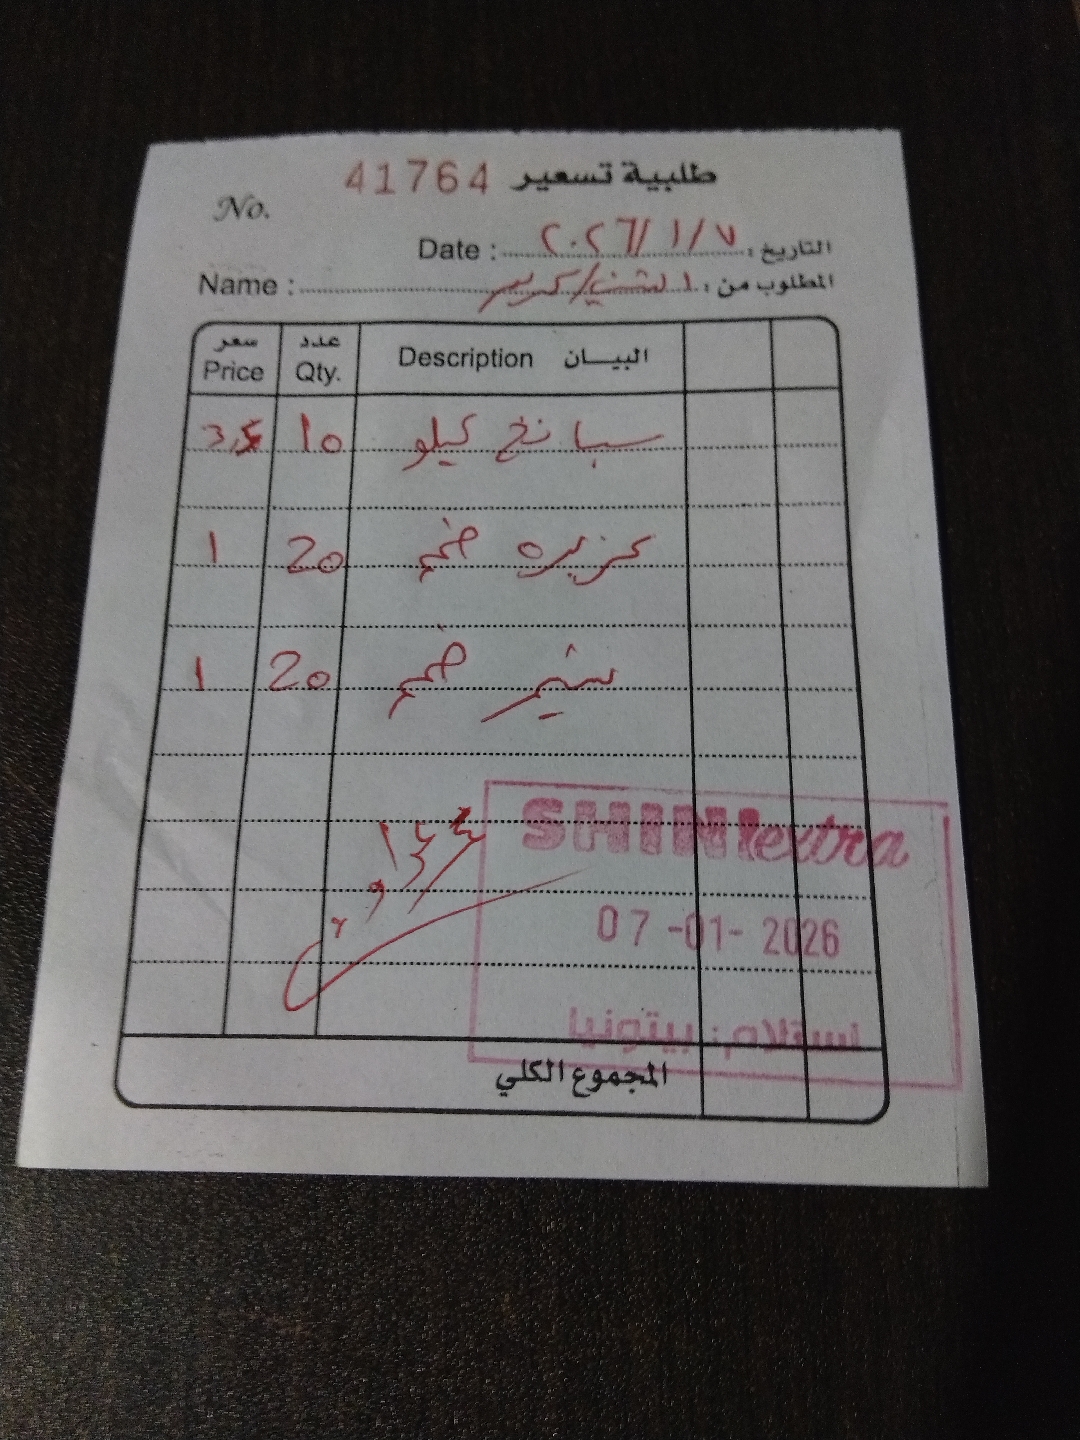 طلبية تسعير 41764
No.
التاريخ : ٢٠٢٦/١/٧ Date :
المطلوب من : الشني/كريم Name :
البيان Description عدد Qty. سعر Price
سبانخ كيلو 10
كزبره ضمم 20 1
ضمم 20 1
SHINI extra
07-01-2026
استلام: بيتونيا
المجموع الكلي